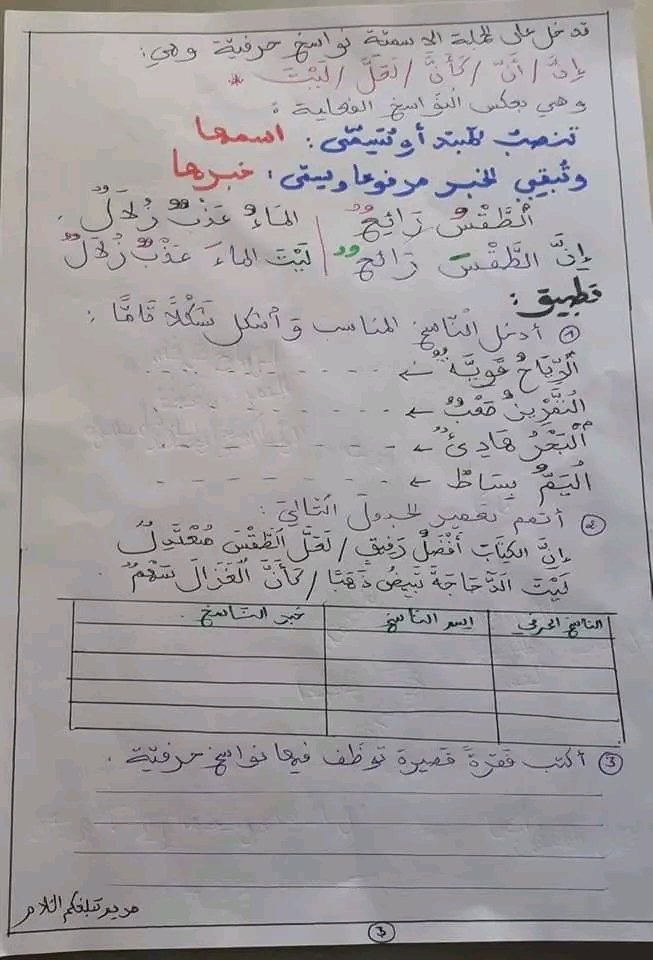 تدخل على الجملة الاسمية نواسخ حرفيّة وهي:
إِنَّ / أَنَّ / كَأَنَّ / لَعَلَّ / لَيْتَ *
وهي بعكس النّواسخ الفعلية :
تنصب المبتدأ وتسمّى: اسمها
وتُبقي الخبر مرفوعا ويسمى: خبرها
الطَّقْسُ رَائِحٌ | المَاءُ عَذْبٌ زُلاَلٌ .
إِنَّ الطَّقْسَ رَائِحٌ | لَيْتَ الماءَ عَذْبٌ زُلاَلٌ
تطبيق :
① أدخل النّاسخ المناسب وأشكل شَكْلاً تَامًّا :
الرِّيَاحُ قَوِيَّةٌ ←
التَّمْرِينُ صَعْبٌ ←
الْبَحْرُ هَادِئٌ ←
اليَمُّ بِسَاطٌ ←
② أتمم تعمير الجدول التّالي :
إِنَّ الكِتَابَ أَفْضَلُ رَفِيقٍ / لَعَلَّ الطَّقْسَ مُعْتَدِلٌ
لَيْتَ الدَّجَاجَةَ تَبِيضُ ذَهَبًا / كَأَنَّ الْغَزَالَ سَهْمٌ .
الناسخ الحرفي | اسم الناسخ | خبر النّاسخ .
③ أكتب فقرةً قصيرة توظف فيها نواسخ حرفيّة .
3